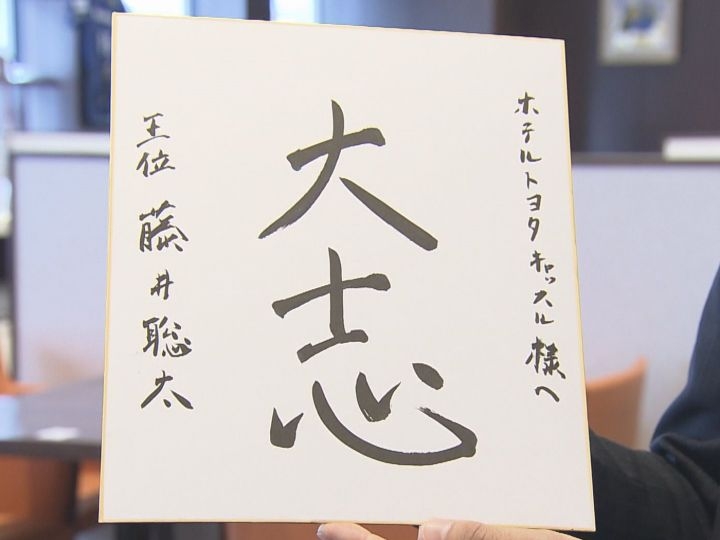 ホテルトヨタキャッスル様へ
大志
王位 藤井聡太